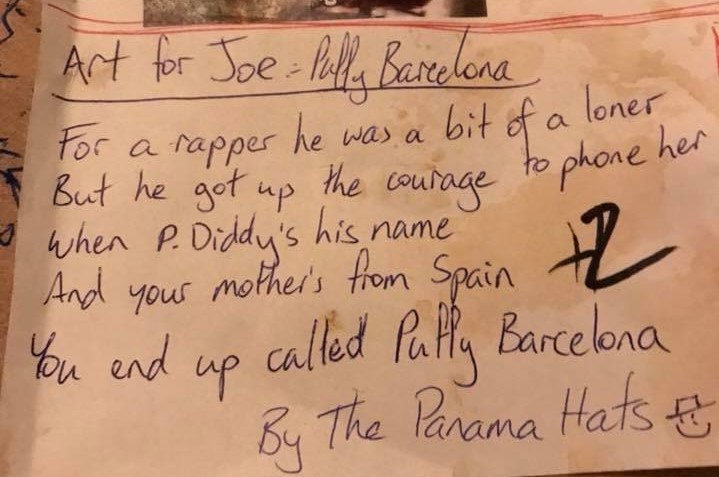 Art for Joe = Puffy Barcelona
For a rapper he was a bit of a loner
But he got up the courage to phone her
When P. Diddy's his name
And your mother's from Spain
+2
You end up called Puffy Barcelona
By The Panama Hats